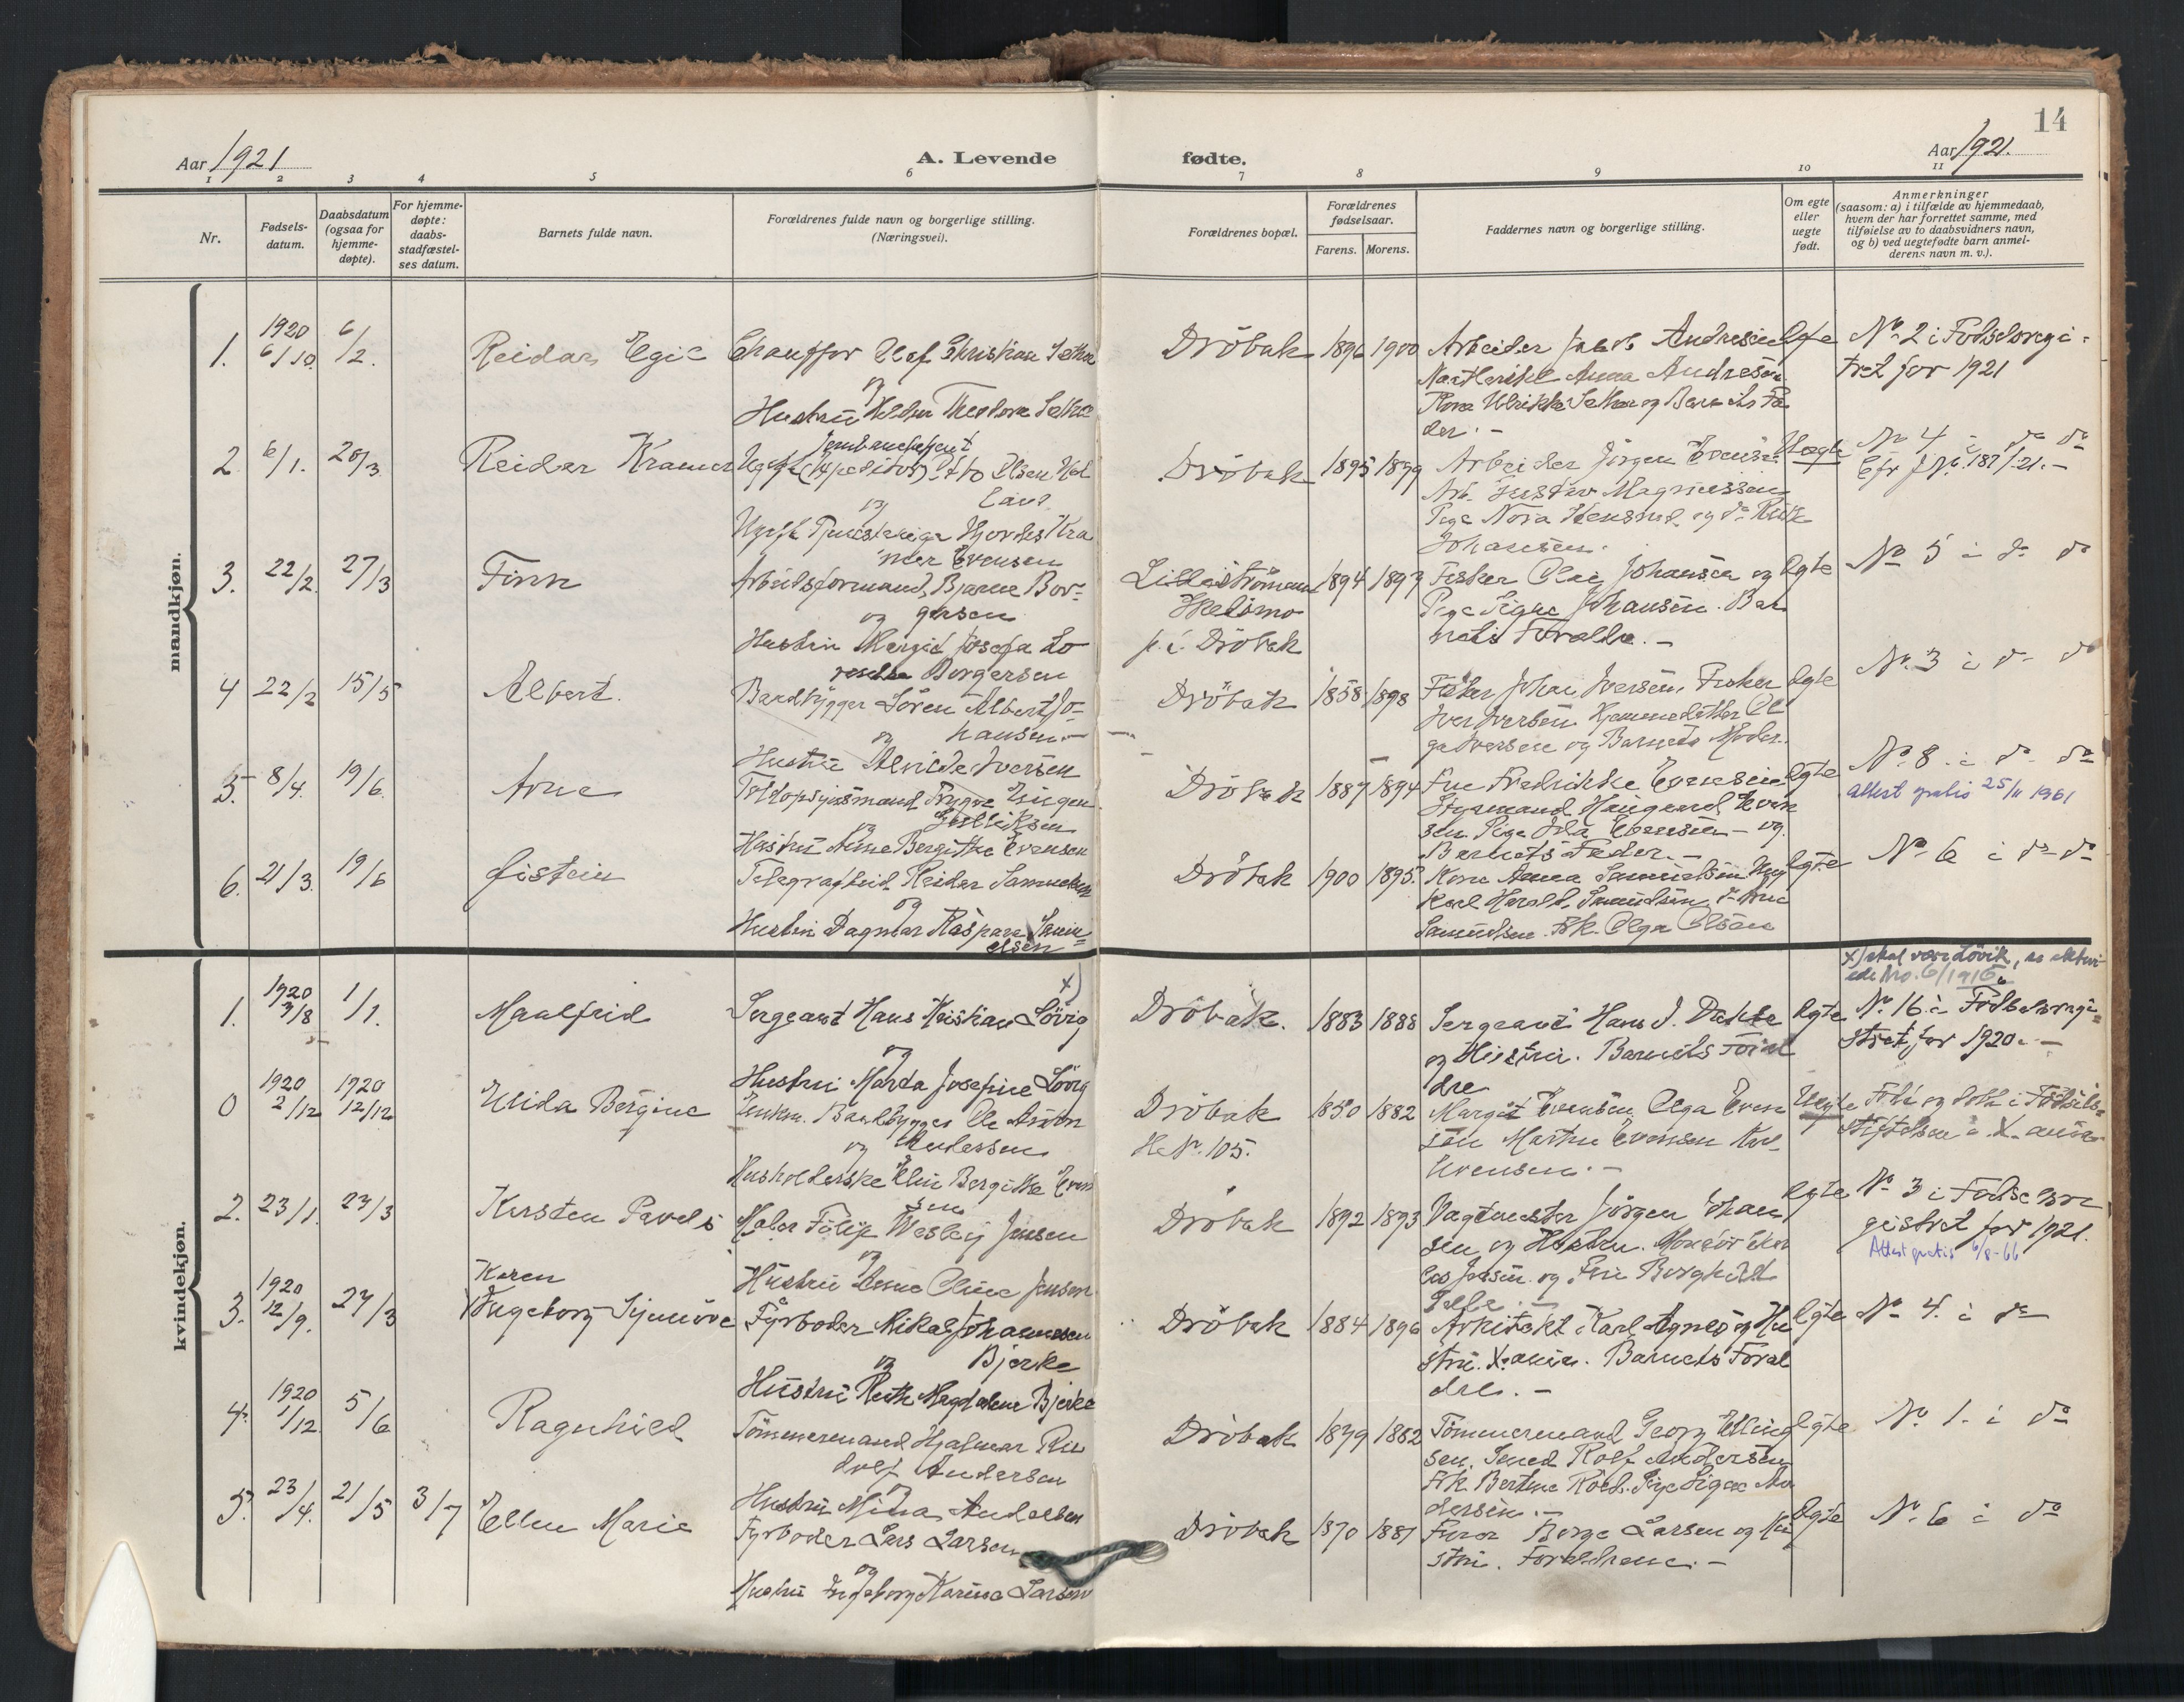 14
Aar 1921
A. Levende
fødte.
Aar 1921.
1 2 3 4 5 6 7 8 9 10 11
Nr.
Fødsels-
datum.
Daabsdatum
(ogsaa for
hjemme-
døpte).
For hjemme-
døpte:
daabs-
stadfæstel-
ses datum.
Barnets fulde navn.
Forældrenes fulde navn og borgerlige stilling.
(Næringsvei).
Forældrenes bopæl.
Forældrenes
fødselsaar.
Farens. Morens.
Faddernes navn og borgerlige stilling.
Om egte
eller
uegte
født.
Anmerkninger
(saasom: a) i tilfælde av hjemmedaab,
hvem der har forrettet samme, med
tilføielse av to daabsvidners navn,
og b) ved uegtefødte barn anmel-
derens navn m. v.).
mandkjøn.
1. 1920 6/10. 6/2. Reidar Egil
Chauffør Olaf Kristian Sethre
og
Hustru Helder Theodora Sethre
Dröbak 1896 1900
Arbeider Jakob Andresen
Anna Andresen
Ulrikke Sethre og Barnets Fa
der. -
Egte
No 2 i Fødselsregi-
tret for 1921
2 6/1. 28/3 Reidar Kramer
Otto Olsen
og
Hjordis Kra
mer Evensen
Dröbak 1895 1899
Arbeider Jörgen Evensen
Arb. Gustav Magnussen
Pige Nora
Johansen.
Uegte
No 4 i do do
Cfr J.No. 187/21. -
3. 22/2. 27/3 Finn
Arbeidsformand Bjarne Bor-
og gersen
Hustru Margit Josefa Lo
Borgersen
Lilleströmmen
p. t. Dröbak
1894 1897
Fisker Olai Johansen og
Pige Signe Johansen. Bar
nets Forældre. -
Egte
No 5 i do do
4 22/2 15/5 Albert.
Baadbygger Sören Albert Jo-
og hansen. -
Hustru Alvilde Iversen
Dröbak 1858 1898
Fisker Johan Iversen. Fisker
Iver Iversen Hjemmedatter Ol
ga Iversen og Barnets Moder.
Egte
No. 3 i do do
5. 8/4. 19/6. Arne
Toldopsynsmand Trygve
og
Hustru Anne Bergitthe Evensen
Dröbak 1887 1894
Frue Fredrikke Evensen
Styrmand Haagaard Even
sen. Pige Ida Evensen - og
Barnets Fader. -
Egte
No. 8. i do do
Attest gratis 25/11 1961
6. 21/3. 19/6 Øistein
Telegrafbud Reidar Samuelsen
og
Hustru Dagmar Kaspara Samu-
elsen
Dröbak 1900 1895.
Kone Anna Samuelsen
Karl Harald Samuelsen
Samuelsen. Frk. Olga Olsen
Egte
No. 6 i do do
kvindekjøn.
x) skal være Lövik, se
No. 6/1915
1. 1920 7/8 1/1. Maalfrid
x)
Sergeant Hans Kristian Lövig
og
Hustru Marta Josefine Lövig
Dröbak. 1883 1888
Sergeant Hans J. Dahle
og Hustru. Barnets Foræl
dre
Egte
No. 16 i Födselsregi-
stret for 1920. -
0 1920 2/12 1920 12/12 Elida Bergine
Enkem. Baadbygger Ole Anton
og Andersen
Husholderske Elin Bergitte Even
sen
Dröbak
H. No. 105.
1850 1882
Margit Evensen Olga Even
sen Marthe Evensen Karl
Evensen. -
Uegte
Född og döbt i Födsels-
stiftelsen i X.ania
2. 23/1. 27/3 Kirsten Pavels
Maler Filip Wesley Jensen
og
Hustru Anna Oline Jensen.
Dröbak 1892 1893
Vagtmester Jörgen Johan
sen og Hustru. Montör
Jensen. og Frue Borghild
Egte
No 3 i Födselsre
gistret for 1921.
Attest gratis 6/8-66
3. 1920 12/9. 27/3 Karen
Ingeborg Synnöve
Fyrböder Nikolai Johannesen
og Bjerke
Hustru Ruth Magdalene Bjerke
Dröbak 1884 1896
Arkitekt Karl Agnes og Hu
stru. X.ania. Barnets Foræl
dre. -
Egte
No 4. i do
4. 1920 1/12 5/6 Ragnhild
Tömmermand Hjalmar Ru
dolf Andersen
og
Hustru Mina Andersen
Dröbak 1879 1882
Tömmermand Georg Elling
sen. Rolf Andersen
Frk. Bertine Roed. Pige Signe An
dersen. -
Egte
No. 1. i do
5. 23/4. 21/5 3/7 Ellen Marie
Fyrböder Lars Larsen
og
Hustru Ingeborg Karine Larsen
Dröbak 1870 1881
Borge Larsen og Hu
stru. Forældrene. -
Egte
No. 6 i do